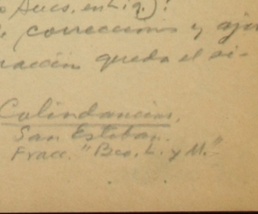 Sucs. en Liq.).
correcciones y aju
racción queda el si-
Colindancias.
San Esteban.
Fracc. "Bco. L. y M."